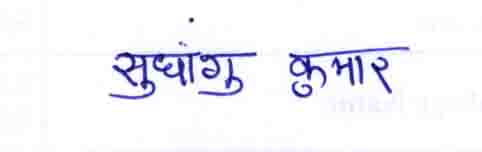 सुधांशु कुमार